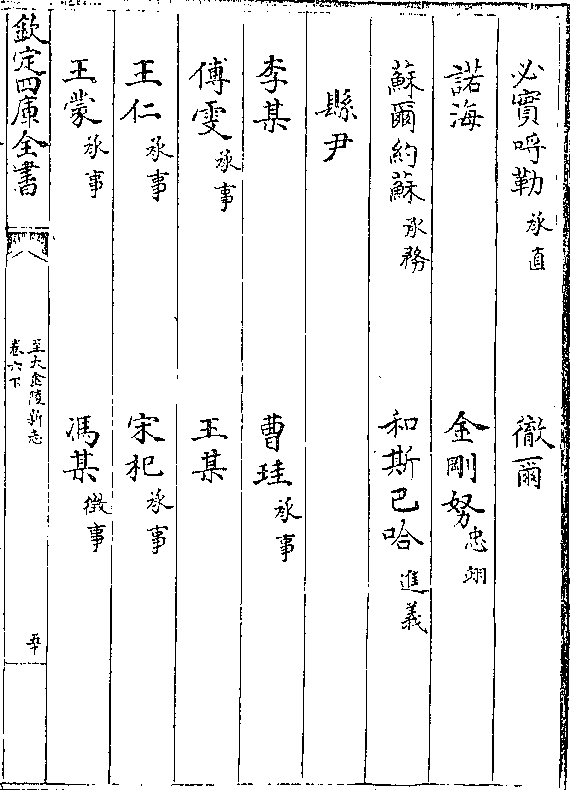 必實呼勒承直　徹爾
諾海　金剛努忠翊
蘇爾約蘇承務　和斯巴哈進義
縣尹
李某　曹珪承事
傅雯承事　王某
王仁承事　宋杞承事
王蒙承事　馮某徵事
欽定四庫全書
至大金陵新志
卷六下